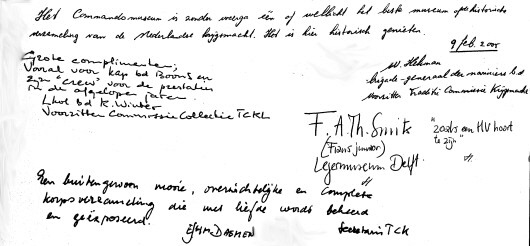 Het Commandomuseum is zonder weerga één of wellicht het beste museum op historisch
verzameling van de Nederlandse krijgsmacht. Het is hier historisch genieten.
9 feb. 2005
W. Holman
brigade-generaal der mariniers b.d
voorzitter Traditie Commissie Krijgsmacht
Grote complimenten;
Vooral voor kap bd Boons en
zijn "crew" voor de prestaties
in de afgelopen jaren.
Lkol bd K. Winter
Voorzitter Commissie Collectie TCKL
F.A.Th. Smits
(Frans junior)
Legermuseum Delft.
"zoals een HV hoort
te zijn"
Een buitengewoon mooie, overzichtelijke en complete
korpsverzameling die met liefde wordt beheerd
en geëxposeerd.
DAEMEN
Secretaris TCK